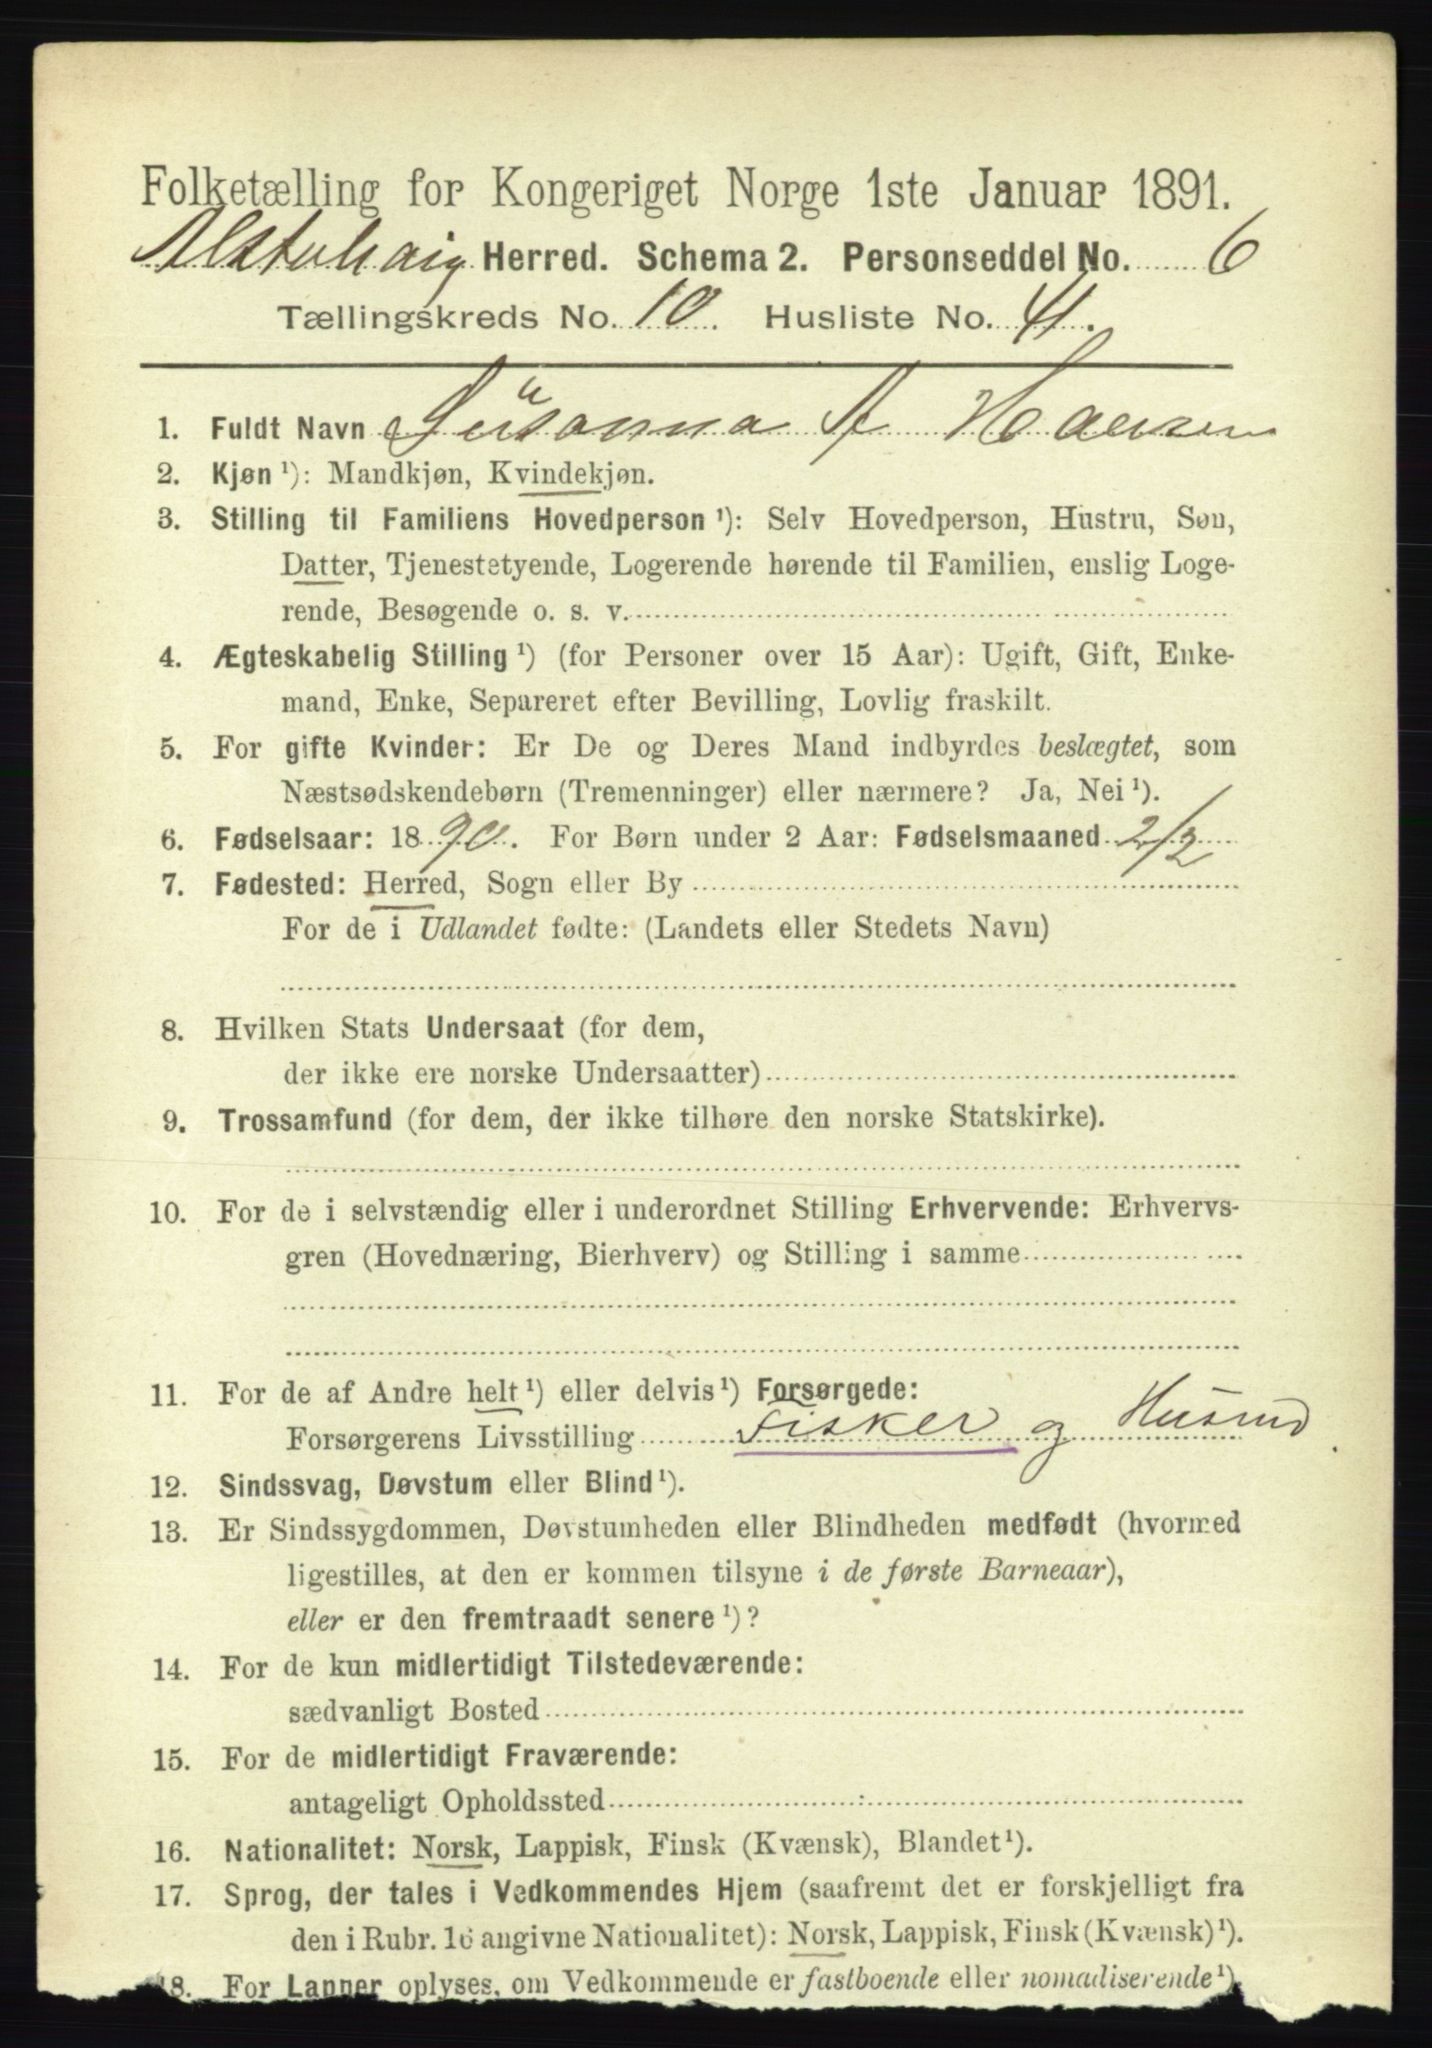 Folketælling for Kongeriget Norge 1ste Januar 1891.
Alstahaug Herred. Schema 2. Personseddel No. 6
Tællingskreds No. 10. Husliste No. 4.
1. Fuldt Navn Susanna A Hansen
2. Kjøn ¹): Mandkjøn, Kvindekjøn.
3. Stilling til Familiens Hovedperson ¹): Selv Hovedperson, Hustru, Søn,
Datter, Tjenestetyende, Logerende hørende til Familien, enslig Loge-
rende, Besøgende o. s. v.
4. Ægteskabelig Stilling ¹) (for Personer over 15 Aar): Ugift, Gift, Enke-
mand, Enke, Separeret efter Bevilling, Lovlig fraskilt.
5. For gifte Kvinder: Er De og Deres Mand indbyrdes beslægtet, som
Næstsødskendebørn (Tremenninger) eller nærmere? Ja, Nei ¹).
6. Fødselsaar: 1890. For Børn under 2 Aar: Fødselsmaaned 2/2
7. Fødested: Herred, Sogn eller By
For de i Udlandet fødte: (Landets eller Stedets Navn)
8. Hvilken Stats Undersaat (for dem,
der ikke ere norske Undersaatter)
9. Trossamfund (for dem, der ikke tilhøre den norske Statskirke).
10. For de i selvstændig eller i underordnet Stilling Erhvervende: Erhvervs-
gren (Hovednæring, Bierhverv) og Stilling i samme
11. For de af Andre helt ¹) eller delvis ¹) Forsørgede:
Forsørgerens Livsstilling Fisker og
12. Sindssvag, Døvstum eller Blind ¹).
13. Er Sindssygdommen, Døvstumheden eller Blindheden medfødt (hvormed
ligestilles, at den er kommen tilsyne i de første Barneaar),
eller er den fremtraadt senere ¹)?
14. For de kun midlertidigt Tilstedeværende:
sædvanligt Bosted
15. For de midlertidigt Fraværende:
antageligt Opholdssted
16. Nationalitet: Norsk, Lappisk, Finsk (Kvænsk), Blandet ¹).
17. Sprog, der tales i Vedkommendes Hjem (saafremt det er forskjelligt fra
den i Rubr. 16 angivne Nationalitet): Norsk, Lappisk, Finsk (Kvænsk) ¹).
18. For Lapper oplyses, om Vedkommende er fastboende eller nomadiserende ¹)